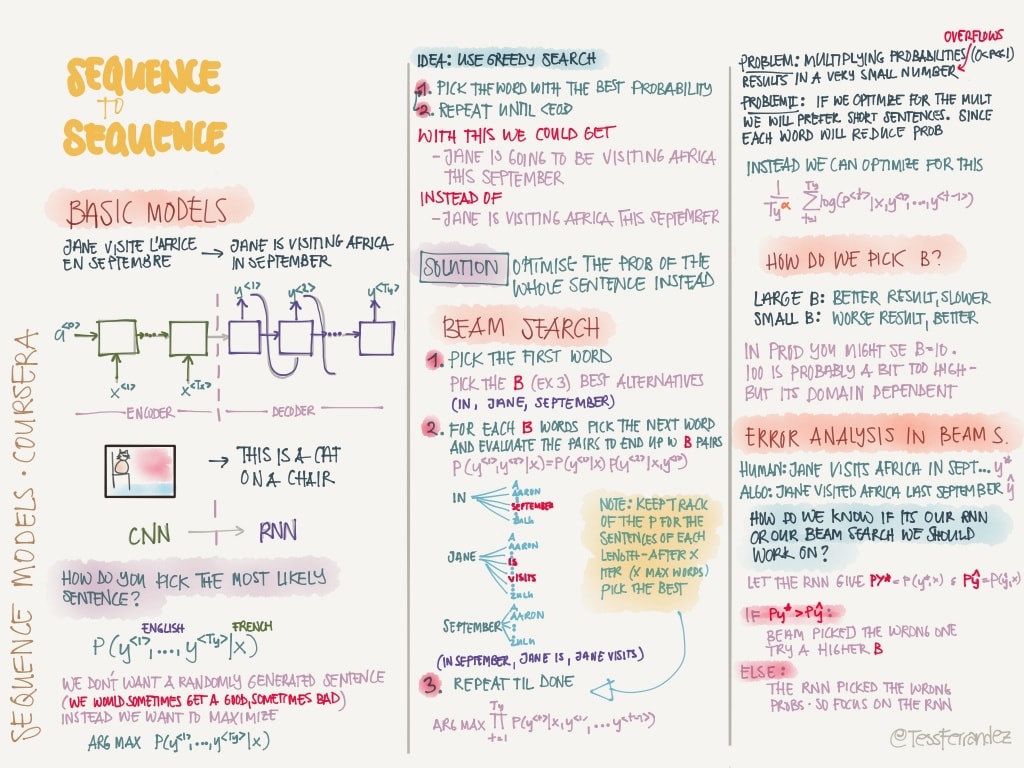 SEQUENCE
TO
SEQUENCE
SEQUENCE MODELS · COURSERA
BASIC MODELS
JANE VISITE L'AFRICE
EN SEPTEMBRE
→ JANE IS VISITING AFRICA
IN SEPTEMBER
y<1> y<2> y<Ty>
a<0>
x<1> x<Tx>
ENCODER DECODER
→ THIS IS A CAT
ON A CHAIR
CNN → RNN
HOW DO YOU PICK THE MOST LIKELY
SENTENCE?
ENGLISH FRENCH
P(y<1>,...,y<Ty>|x)
WE DON'T WANT A RANDOMLY GENERATED SENTENCE
(WE WOULD SOMETIMES GET A GOOD, SOMETIMES BAD)
INSTEAD WE WANT TO MAXIMIZE
ARG MAX P(y<1>,...,y<Ty>|x)
IDEA: USE GREEDY SEARCH
1. PICK THE WORD WITH THE BEST PROBABILITY
2. REPEAT UNTIL <EOS>
WITH THIS WE COULD GET
- JANE IS GOING TO BE VISITING AFRICA
THIS SEPTEMBER
INSTEAD OF
- JANE IS VISITING AFRICA THIS SEPTEMBER
SOLUTION OPTIMISE THE PROB OF THE
WHOLE SENTENCE INSTEAD
BEAM SEARCH
1. PICK THE FIRST WORD
PICK THE B (EX 3) BEST ALTERNATIVES
(IN, JANE, SEPTEMBER)
2. FOR EACH B WORDS PICK THE NEXT WORD
AND EVALUATE THE PAIRS TO END UP W B PAIRS
P(y<1>,y<2>|x)=P(y<1>|x) P(y<2>|x,y<1>)
IN
A
AARON
SEPTEMBER
ZULU
JANE
A
AARON
IS
VISITS
ZULU
SEPTEMBER
A
AARON
ZULU
NOTE: KEEP TRACK
OF THE P FOR THE
SENTENCES OF EACH
LENGTH - AFTER X
ITER (X MAX WORDS)
PICK THE BEST
(IN SEPTEMBER, JANE IS, JANE VISITS)
3. REPEAT TIL DONE
ARG MAX ∏ P(y<t>|x,y<1>,...y<t-1>)
Ty
t=1
OVERFLOWS
PROBLEM: MULTIPLYING PROBABILITIES (0<P<<1)
RESULTS IN A VERY SMALL NUMBER
PROBLEM II: IF WE OPTIMIZE FOR THE MULT
WE WILL PREFER SHORT SENTENCES. SINCE
EACH WORD WILL REDUCE PROB
INSTEAD WE CAN OPTIMIZE FOR THIS
1/Ty^α ∑ log(P<t>|x,y<1>,...,y<t-1>)
Ty
t=1
HOW DO WE PICK B?
LARGE B: BETTER RESULT, SLOWER
SMALL B: WORSE RESULT, BETTER
IN PROD YOU MIGHT SE B=10.
100 IS PROBABLY A BIT TOO HIGH -
BUT ITS DOMAIN DEPENDENT
ERROR ANALYSIS IN BEAM S.
HUMAN: JANE VISITS AFRICA IN SEPT... y*
ALGO: JANE VISITED AFRICA LAST SEPTEMBER ŷ
HOW DO WE KNOW IF ITS OUR RNN
OR OUR BEAM SEARCH WE SHOULD
WORK ON?
LET THE RNN GIVE Py*=P(y*,x) & Pŷ=P(ŷ,x)
IF Py*>Pŷ:
BEAM PICKED THE WRONG ONE
TRY A HIGHER B
ELSE:
THE RNN PICKED THE WRONG
PROBS - SO FOCUS ON THE RNN
@TessFerrandez